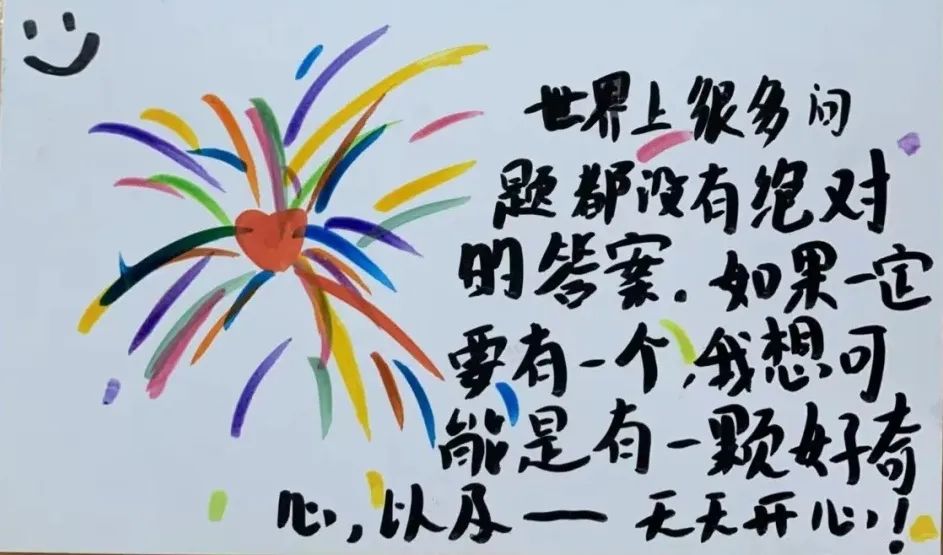 世界上很多问
题都没有绝对
的答案.如果一定
要有一个,我想可
能是有一颗好奇
心,以及——天天开心!